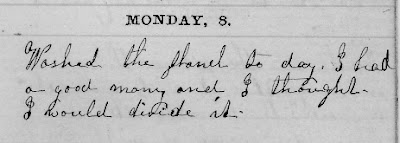 MONDAY, 8.
Washed the flanel to day. I had
a good many and I thought
I would divide it.